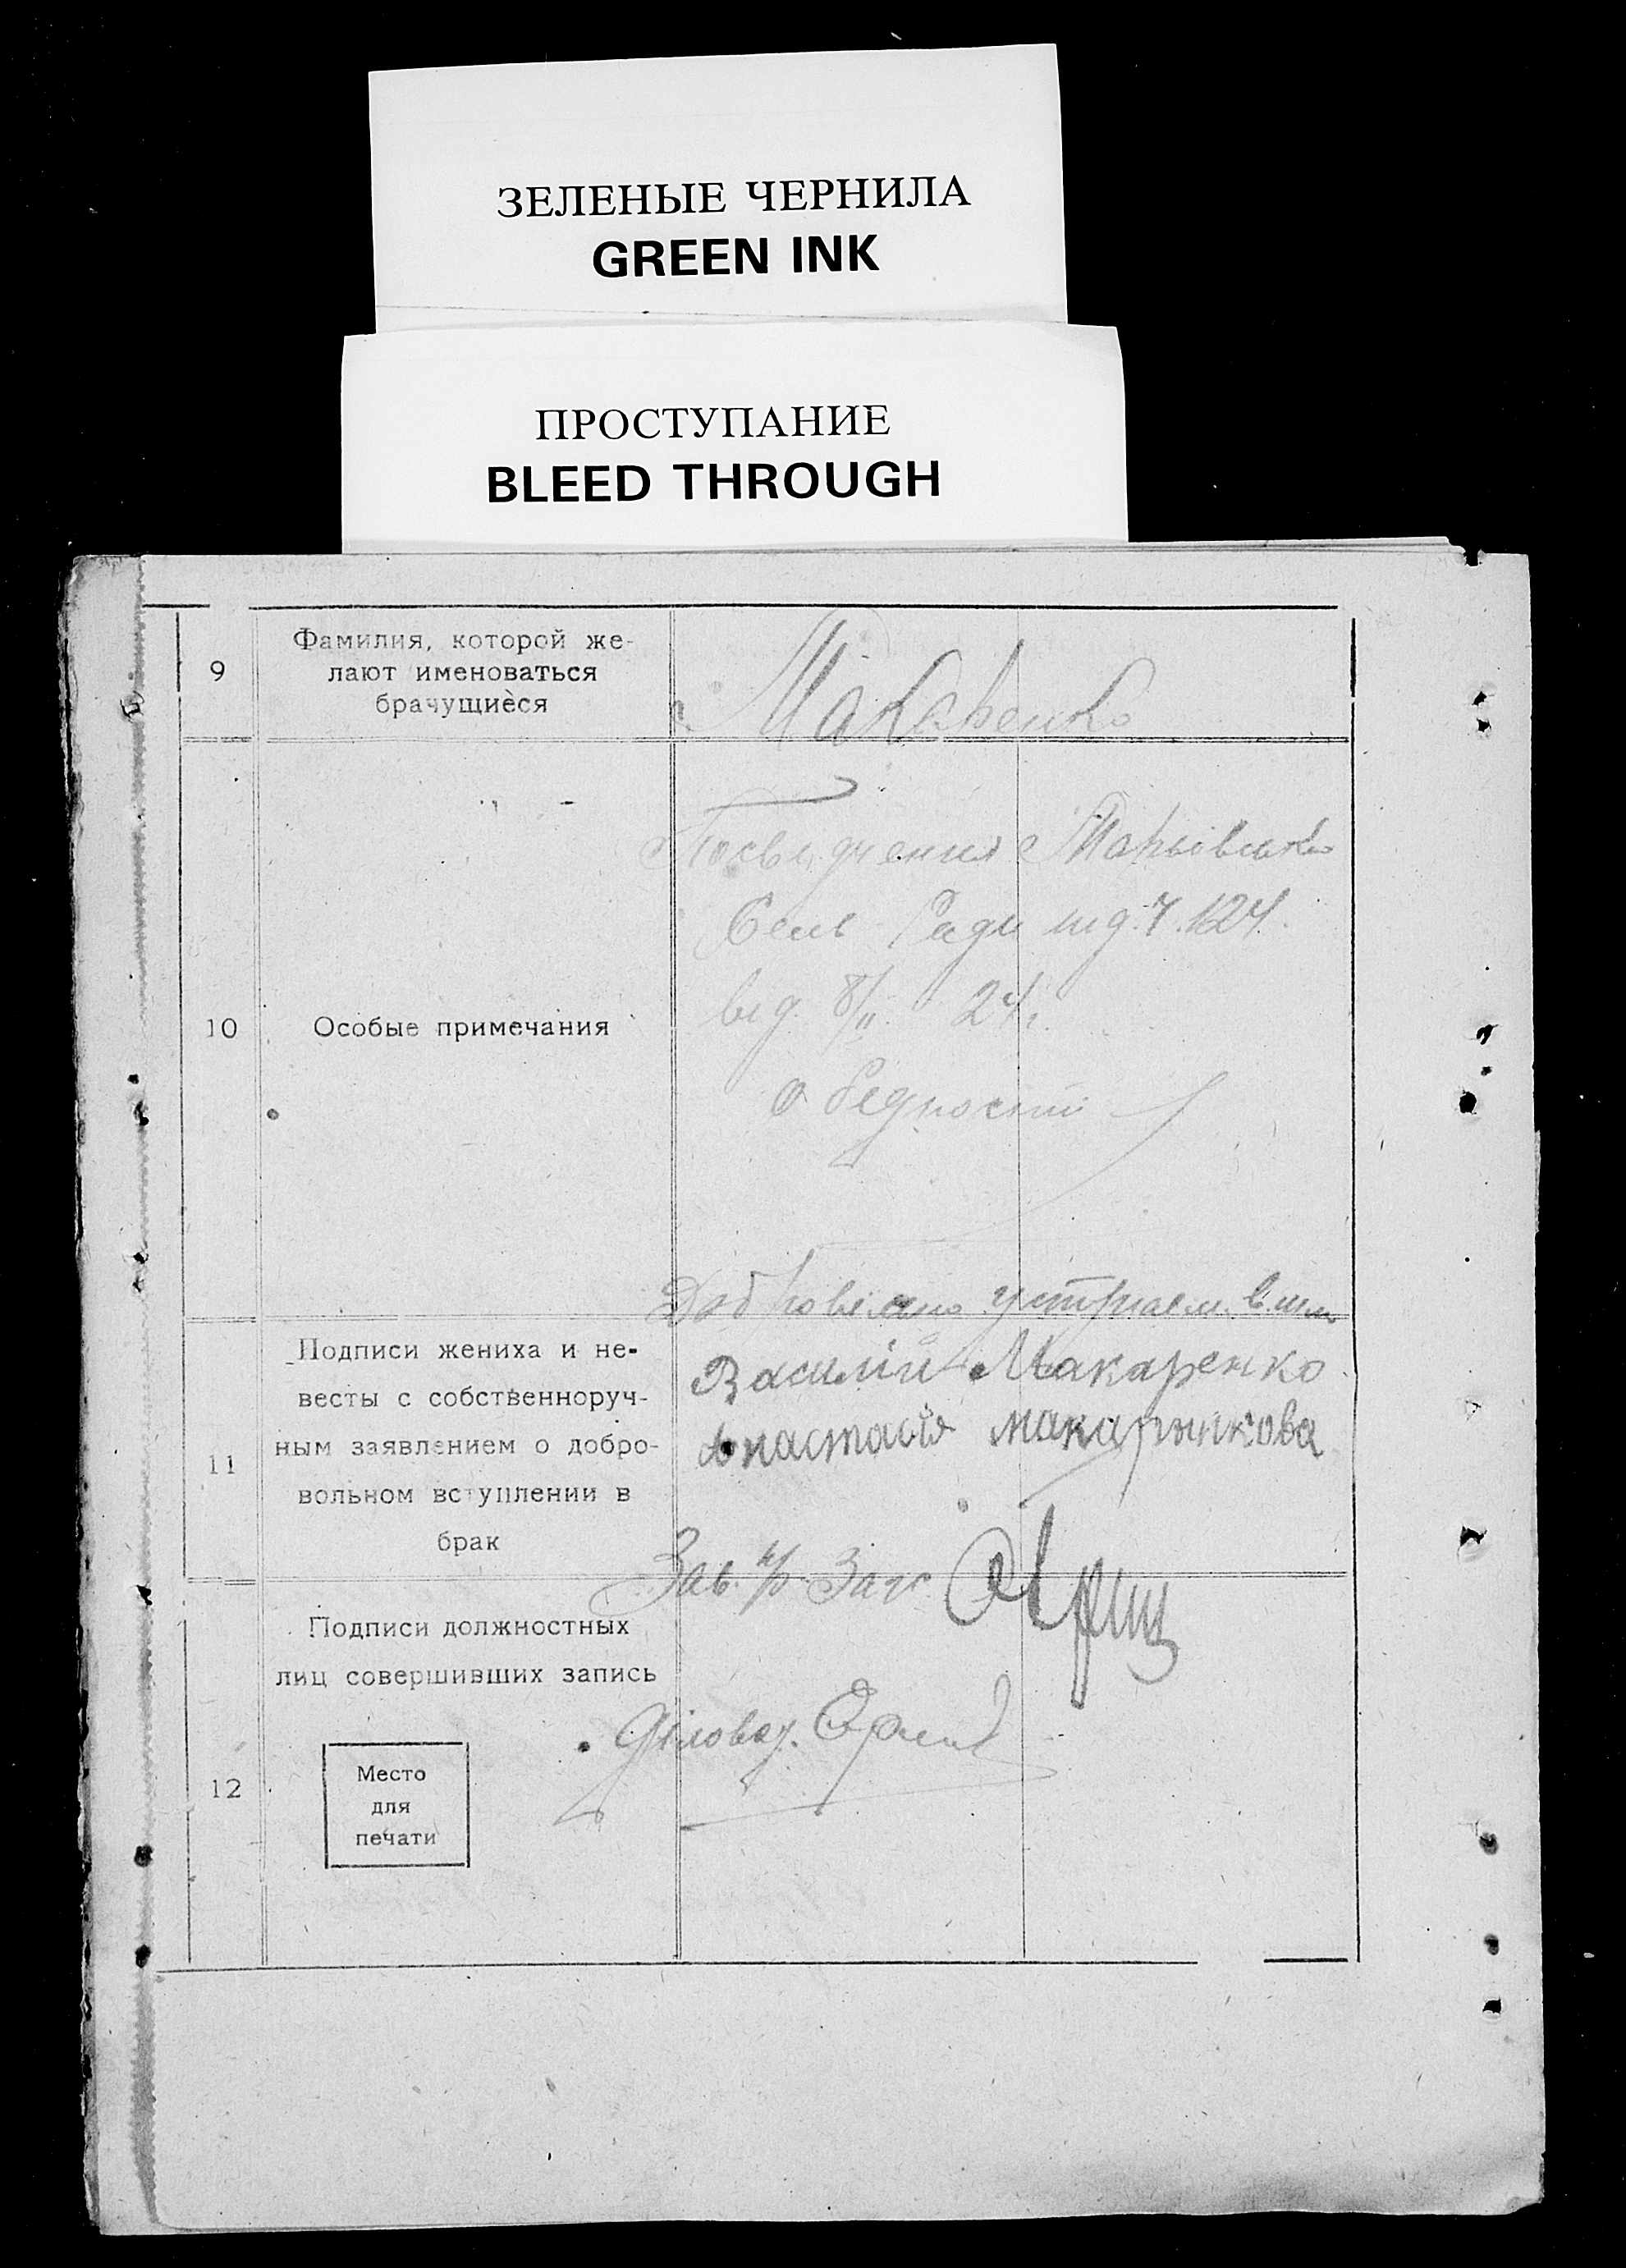 ЗЕЛЕНЫЕ ЧЕРНИЛА
GREEN INK
ПРОСТУПАНИЕ
BLEED THROUGH
9
Фамилия, которой же-
лают именоваться
брачущиеся
Макаренко
10
Особые примечания
Посвидчення
Сель Ради
від 8/II 24 г.
о бедности
11
Подписи жениха и не-
весты с собственноруч-
ным заявлением о добро-
вольном вступлении в
брак
Василий Макаренко
Анастасия
Зав. Загс
12
Подписи должностных
лиц совершивших запись
Место
для
печати
Діловод.